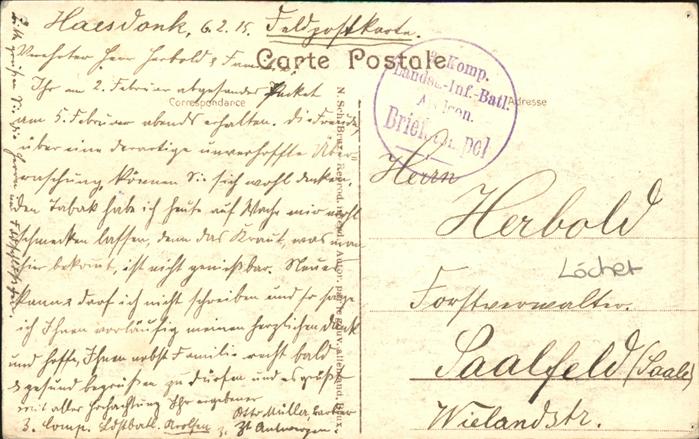 Haesdonk, 6.2.15. Feldpostkarte.
Verehrter Herr Herbold & Familie!
Carte Postale
Correspondance
Adresse
Ihr am 2. Februar abgesandtes Packet
am 5. Februar abends erhalten. Die Freude,
über eine derartige unverhoffte Über-
raschung, können Sie sich wohl denken,
den Tabak habe ich heute auf Wache mir wohl
schmecken lassen, denn das Kraut, was man
hier bekomt, ist nicht genießbar. Neues
kann & darf ich nicht schreiben und so sage
ich Ihnen vorläufig meinen herzlichen Dank
und hoffe, Ihnen nebst Familie recht bald
& gesund begrüßen zu dürfen und es grüßt
mit aller Hochachtung Ihr ergebener
Otto Müller,
3. Comp. Ldstbatl. Arolsen z. Zt Antwerpen.
Komp.
Landst.-Inf.-Batl.
Arolsen.
Briefstempel
Herrn
Herbold
Löcher
Forstverwalter.
Saalfeld (Saale)
Wielandstr.